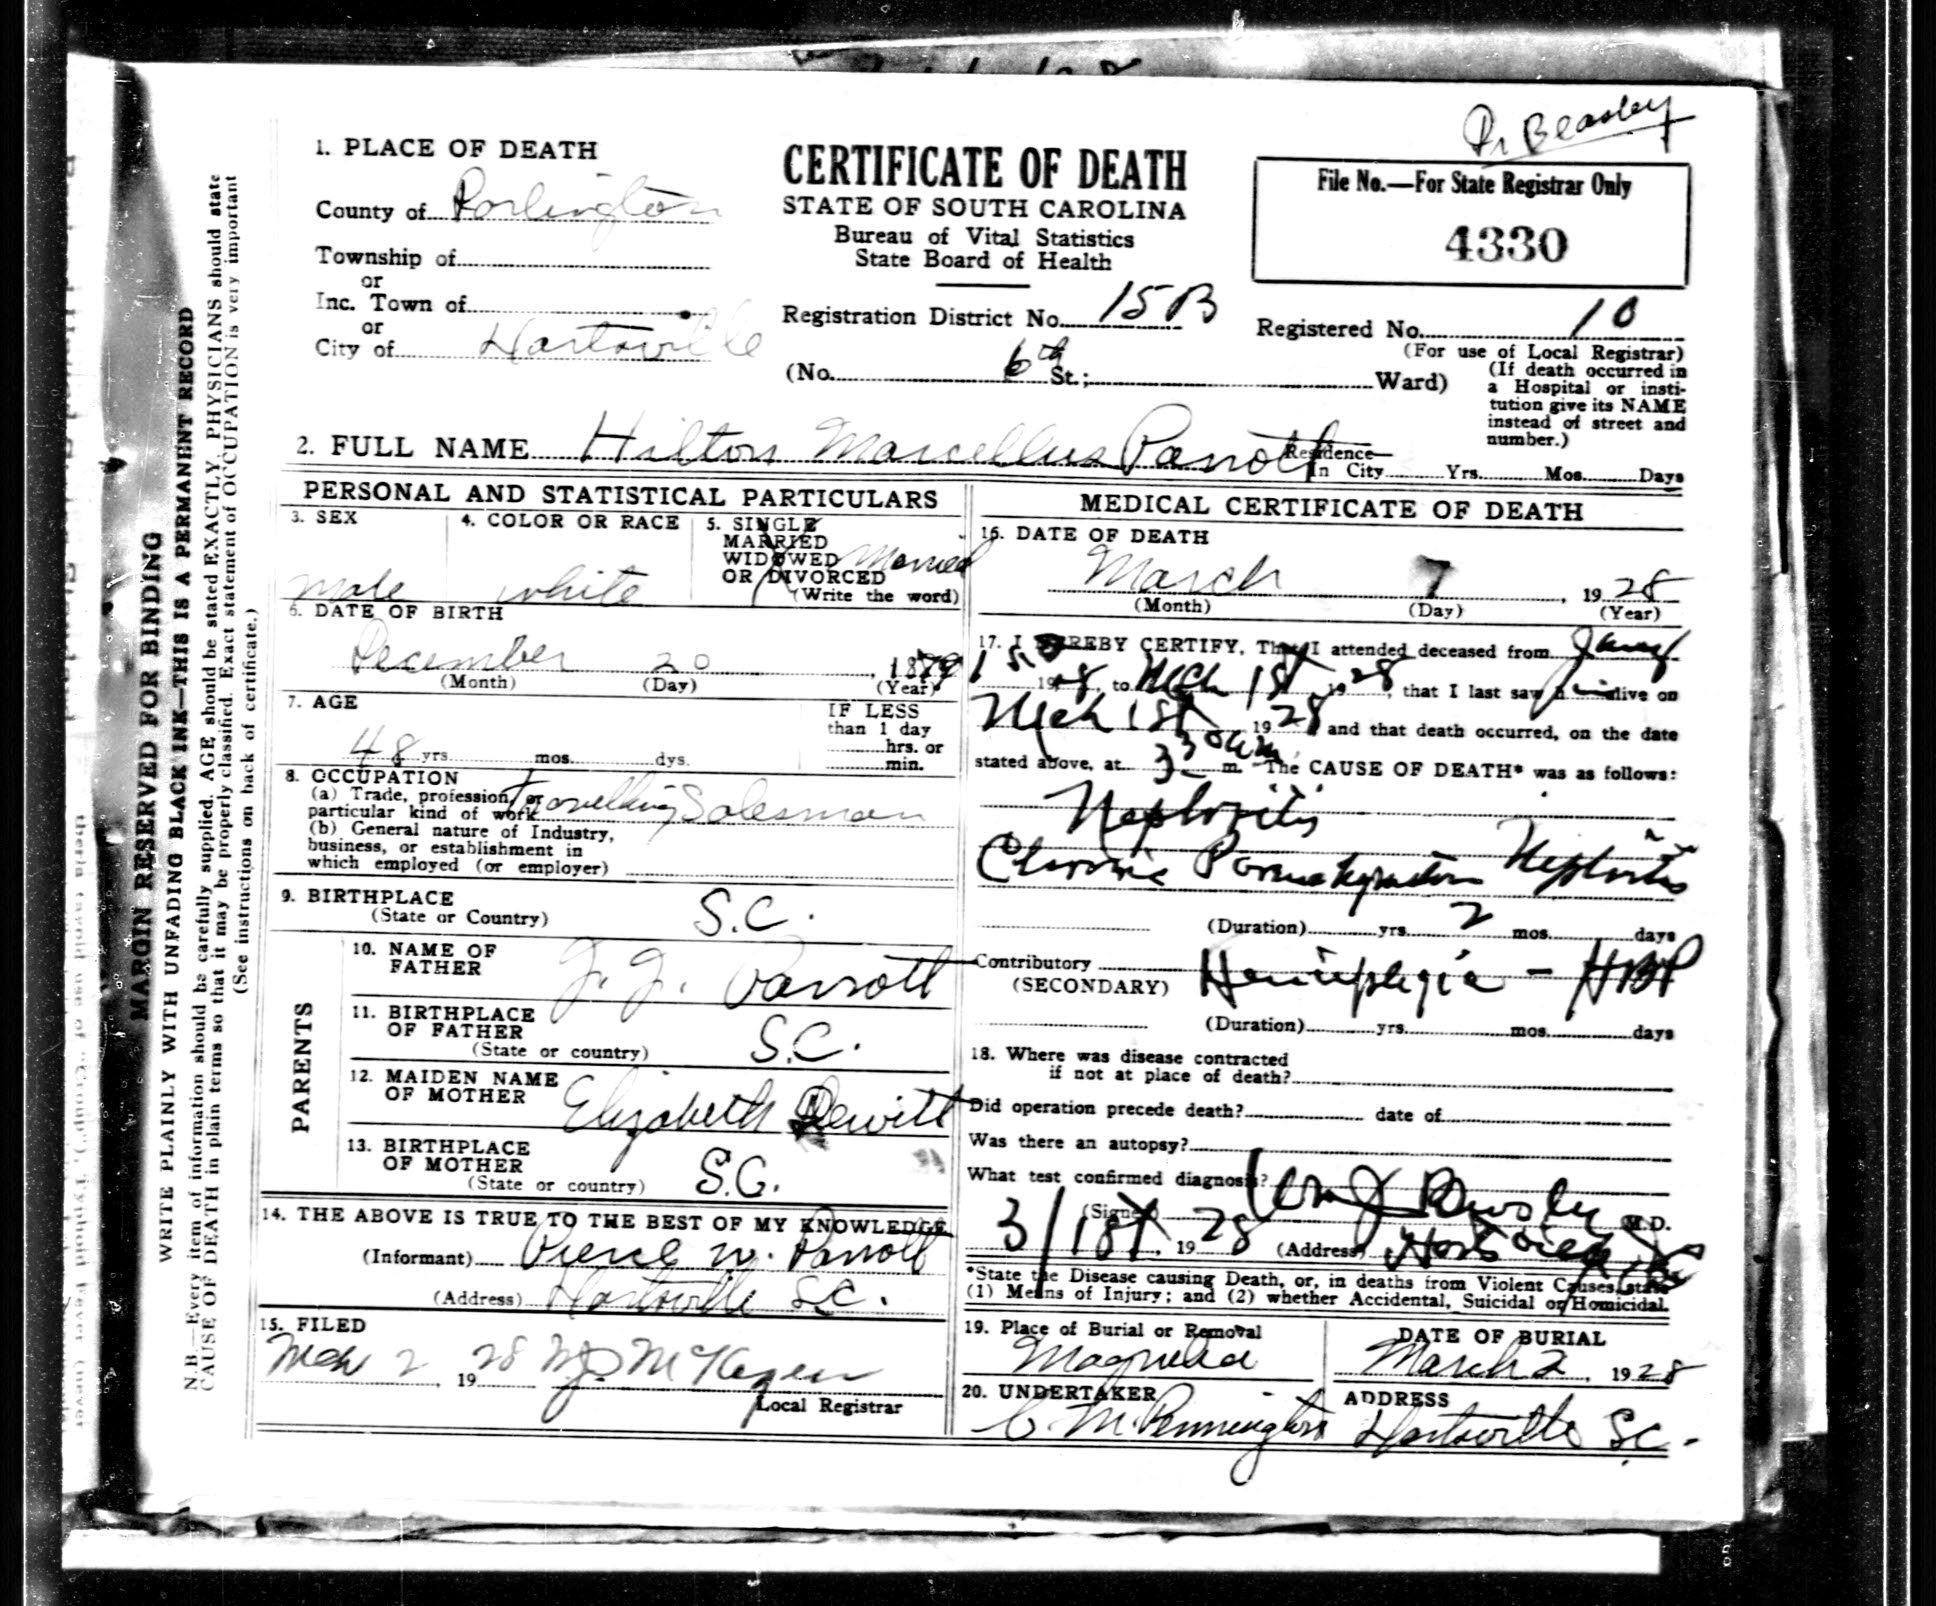 Dr Beasley
1. PLACE OF DEATH
County of Darlington
Township of
or
Inc. Town of
or
City of Hartsville
CERTIFICATE OF DEATH
STATE OF SOUTH CAROLINA
Bureau of Vital Statistics
State Board of Health
Registration District No. 15B
(No. 6th St.; Ward)
File No.—For State Registrar Only
4330
Registered No. 10
(For use of Local Registrar)
(If death occurred in
a Hospital or insti-
tution give its NAME
instead of street and
number.)
2. FULL NAME Hilton Marcellus Parrott
Residence—
In City Yrs. Mos. Days
PERSONAL AND STATISTICAL PARTICULARS
3. SEX
male
4. COLOR OR RACE
white
5. SINGLE
MARRIED
WIDOWED
OR DIVORCED
Married
(Write the word)
6. DATE OF BIRTH
December 20, 1879
(Month) (Day) (Year)
7. AGE
48 yrs. mos. dys.
IF LESS
than 1 day
hrs. or
min.
8. OCCUPATION
(a) Trade, profession, or
particular kind of work Travelling Salesman
(b) General nature of Industry,
business, or establishment in
which employed (or employer)
9. BIRTHPLACE
(State or Country) S.C.
PARENTS
10. NAME OF
FATHER J. J. Parrott
11. BIRTHPLACE
OF FATHER
(State or country) S.C.
12. MAIDEN NAME
OF MOTHER Elizabeth Dewitt
13. BIRTHPLACE
OF MOTHER
(State or country) S.C.
14. THE ABOVE IS TRUE TO THE BEST OF MY KNOWLEDGE
(Informant) Pierce W. Parrott
(Address) Hartsville S.C.
15. FILED
Mch 2, 1928
Local Registrar
MEDICAL CERTIFICATE OF DEATH
16. DATE OF DEATH
March 1, 1928
(Month) (Day) (Year)
17. I HEREBY CERTIFY, That I attended deceased from Jany
1st 1928, to Mch 1st 1928, that I last saw him alive on
Mch 1st 1928 and that death occurred, on the date
stated above, at 3 30 a.m. m. The CAUSE OF DEATH* was as follows:
Nephritis
Chronic Parenchymatous Nephritis
(Duration) yrs. 2 mos. days
Contributory Hemiplegia - HBP
(SECONDARY)
(Duration) yrs. mos. days
18. Where was disease contracted
if not at place of death?
Did operation precede death? date of
Was there an autopsy?
What test confirmed diagnosis?
(Signed) Beasley M.D.
3/1st, 1928 (Address) Hartsville SC
*State the Disease causing Death, or, in deaths from Violent Causes, state
(1) Means of Injury; and (2) whether Accidental, Suicidal or Homicidal.
19. Place of Burial or Removal
Magnolia
DATE OF BURIAL
March 2, 1928
20. UNDERTAKER
C. M. Pennington
ADDRESS
Hartsville S.C.
MARGIN RESERVED FOR BINDING
WRITE PLAINLY WITH UNFADING BLACK INK—THIS IS A PERMANENT RECORD
N.B.—Every item of information should be carefully supplied. AGE should be stated EXACTLY. PHYSICIANS should state
CAUSE OF DEATH in plain terms so that it may be properly classified. Exact statement of OCCUPATION is very important
(See instructions on back of certificate.)